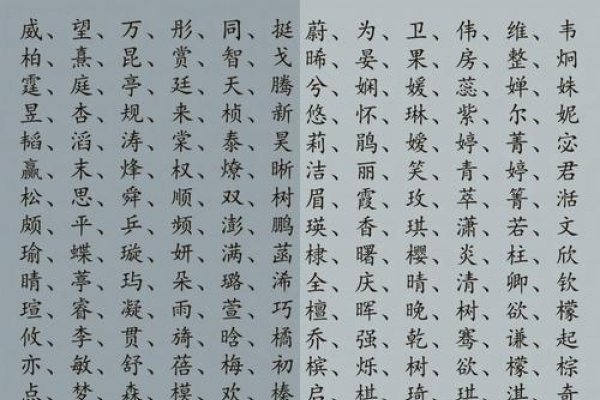 威、望、万、彤、同、挺、蔚、为、卫、伟、维、韦
柏、熹、昆、赏、智、戈、晞、晏、果、房、整、炯
霆、庭、亭、廷、天、腾、兮、娴、媛、蕊、婵、姝
昱、杏、规、来、桢、新、悠、怀、琳、紫、尔、妮
韬、滔、涛、棠、泰、昊、莉、鹃、嫒、婷、菁、宓
赢、末、烽、权、燎、晰、洁、丽、笑、青、婷、君
松、思、舜、顺、双、树、眉、霞、玫、萃、箐、湉
颇、平、乒、频、澎、鹏、瑛、香、琪、潇、若、文
瑜、蝶、璇、妍、满、菡、棣、曙、樱、炎、柱、欣
晴、葶、玙、朵、璐、浠、全、庆、晴、清、卿、钦
瑄、睿、凝、雨、萱、巧、檀、晖、晚、树、欲、檬
攸、李、贯、旖、晗、橘、乔、强、乾、骞、谦、起
亦、敏、舒、蓓、梅、初、槟、烁、树、欲、檬、棕
点、梦、森、模、欢、榛、启、棋、琦、琪、淇、奇